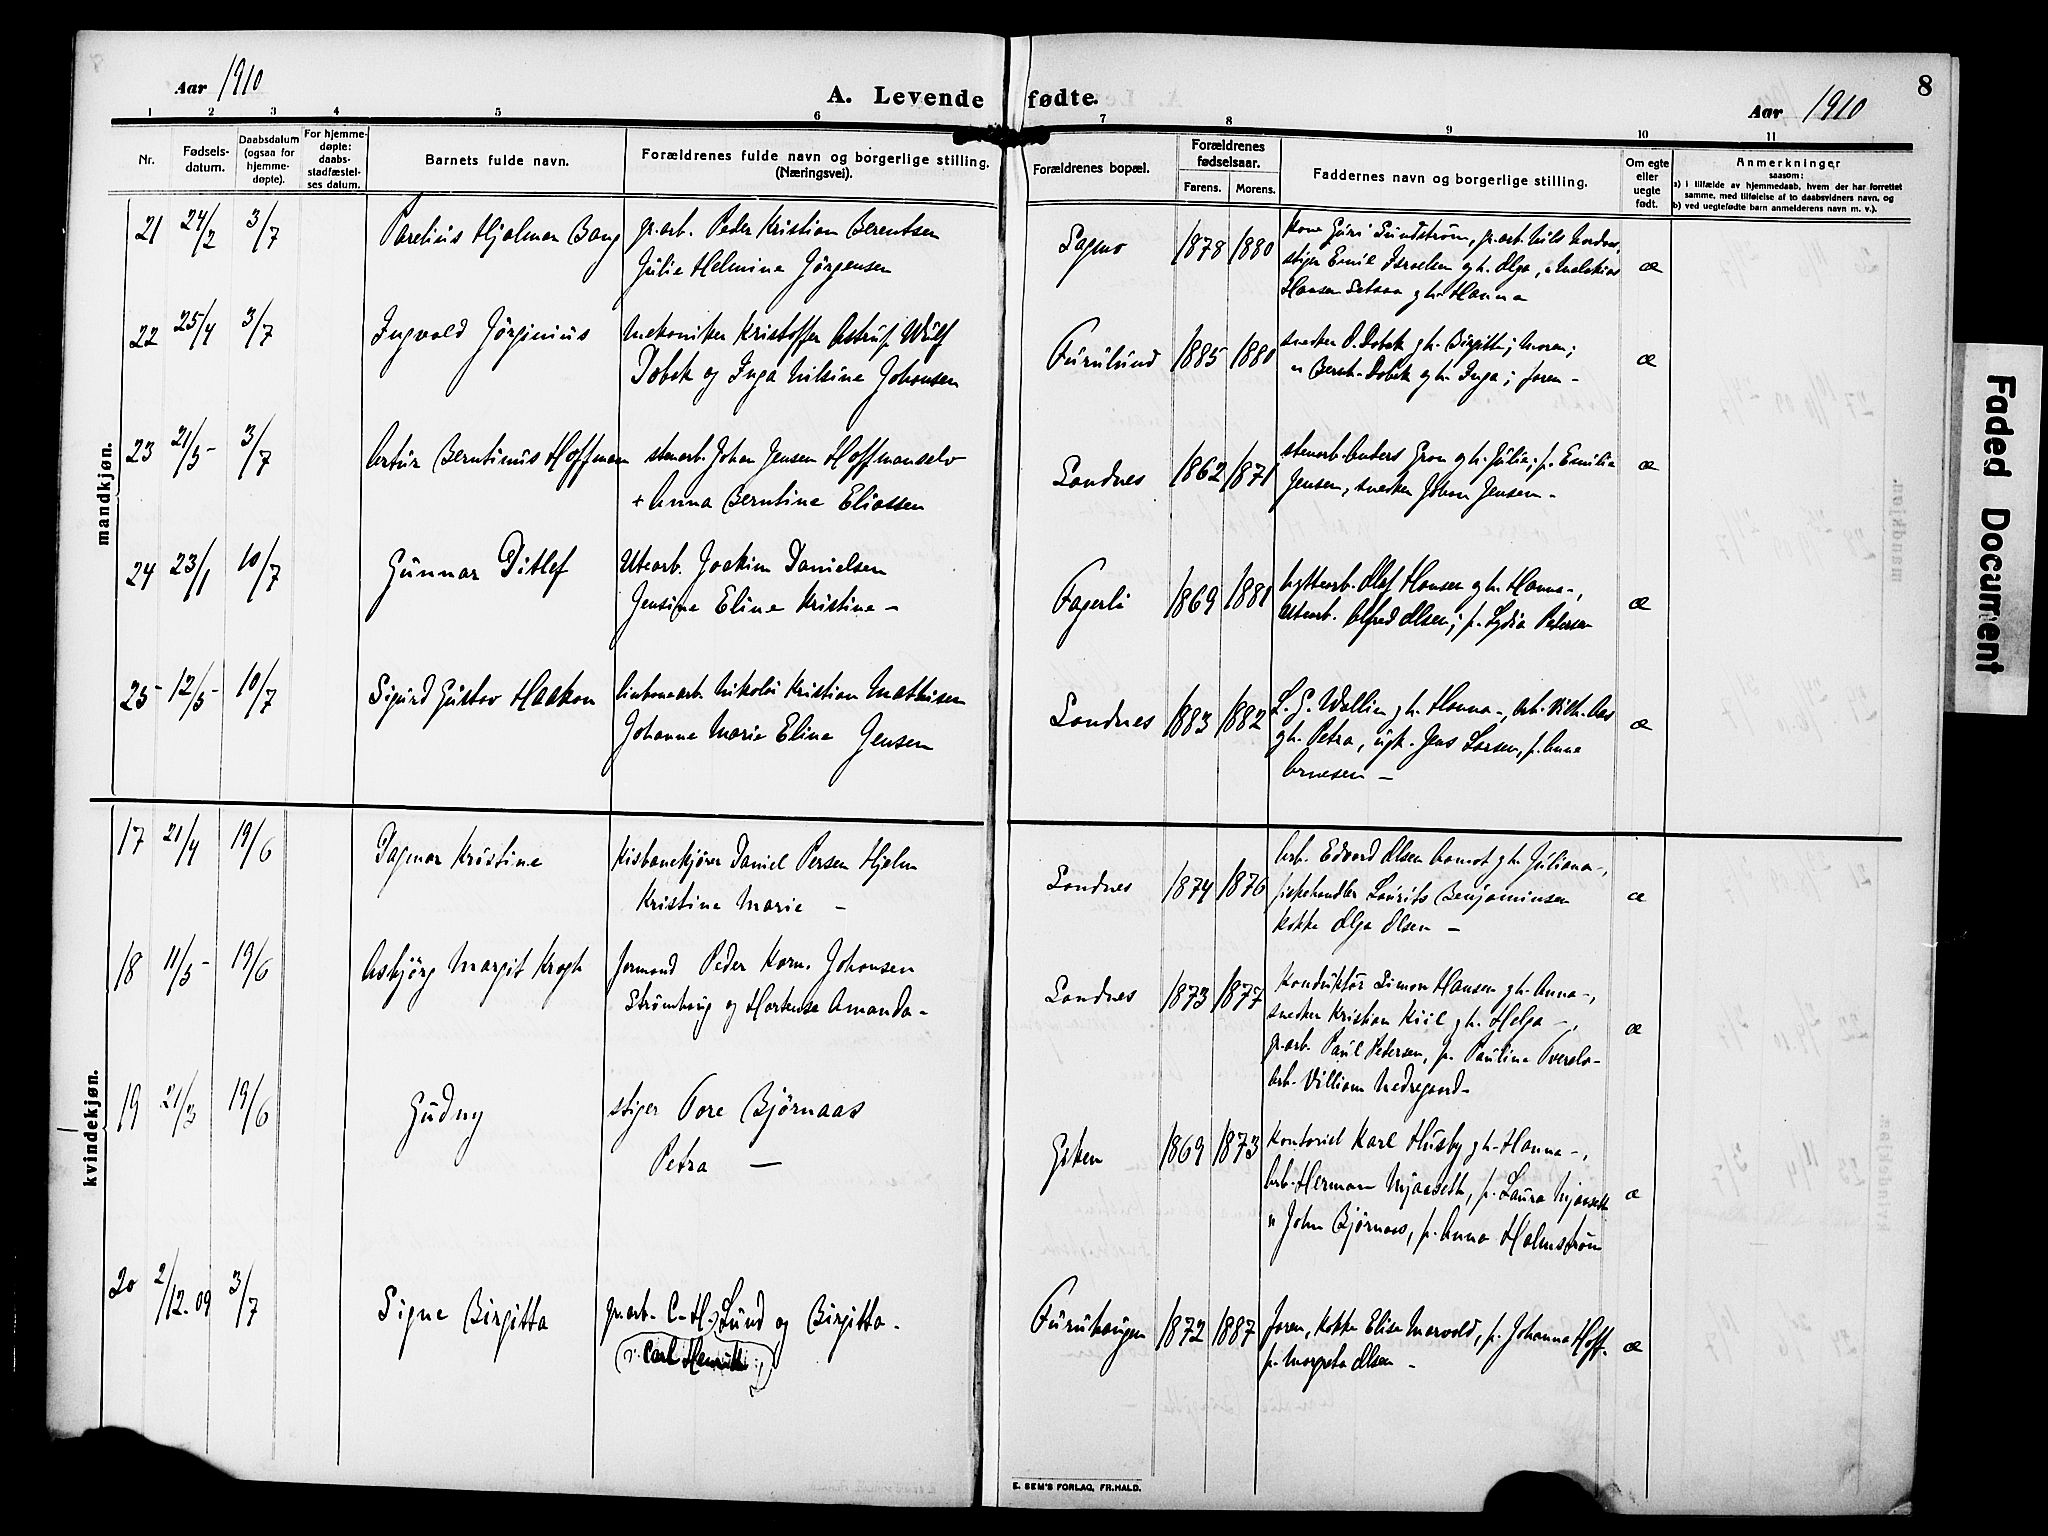 Aar 1910
A. Levende fødte.
8
Aar 1910
1 2 3 4 5 6 7 8 9 10 11
Nr.
Fødselsdatum.
Daabsdatum (ogsaa for hjemmedøpte).
For hjemmedøpte: daabsstadfæstelses datum.
Barnets fulde navn.
Forældrenes fulde navn og borgerlige stilling. (Næringsvei).
Forældrenes bopæl.
Forældrenes fødselsaar.
Farens. Morens.
Faddernes navn og borgerlige stilling.
Om egte eller uegte født.
Anmerkninger
saasom:
a) i tilfælde av hjemmedaab, hvem der har forrettet samme, med tilføielse af to daabsvidners navn, og
b) ved uegtefødte barn anmelderens navn m. v.).
mandkjøn.
21 24/2 3/7 Parelius Hjalmar Bang gr.arb. Peder Kristian Berentsen
Julie Helmine Jørgensen
Sagmo 1878 1880
stiger Emil Israelsen gh. Olga,
Hansen Setsaa gh. Hanna
æ
22 25/4 3/7 Ingvald Jørginius Mekaniker Kristoffer Astrup Wulf
Dobek og Inga Nilsine Johansen
Furulund 1885 1880 snedker O. Dobek gh. Birgitte; moren;
" Bernh. Dobek gh. Inga; faren -
æ
23 21/5 3/7 Artur Berntinus Hoffman stenarb. Johan Jensen Hoffmanselv
+ Anna Berntine Eliassen
Sandnes 1862 1871 stenarb. Anders Gron gh. Julie; p. Emilie
Jensen, snedker Johan Jensen -
æ
24 23/1 10/7 Gunnar Ditlef Utearb. Joakim Danielsen
Jensine Eline Kristine -
Fagerli 1869 1881 hyttearb. Olaf Hansen gh. Hanna -,
utearb. Alfred Olsen; p. Lydia Petersen
æ
25 12/5 10/7 Sigurd Gustav Haakon Nikolai Kristian Mathisen
Johanne Marie Eline Jensen
Sandnes 1883 1882 L. G. Wallin gh. Hanna -, arb. Vilh. Aas
gh. Petra, ugk. Jens Larsen, p. Anna
Arnesen -
æ
kvindekjøn.
17 21/4 19/6 Dagmar Kristine Kisbanekjører Daniel Persen Hjelm
Kristine Marie -
Sandnes 1874 1876 Arb. Edvard Olsen Aamot gh. Juliana -,
fiskehandler Laurits Benjaminsen
kokke Olga Olsen -
æ
18 11/5 19/6 Asbjørg Margit Krogh formand Peder Korn. Johansen
Strømberg og Hortense Amanda -
Sandnes 1873 1877 Konduktør Simon Hansen gh. Anna -,
snedker Kristian Kiil gh. Helga -,
gr.arb. Paul Pedersen, p. Pauline Tverelv-
Arb. Villiam Nedregaard -
æ
19 21/3 19/6 Gudny stiger Tore Bjørnaas
Petra -
Giken 1869 1873 Kontorist Karl Husby gh. Hanna -,
Arb. Herman Mjaaseth, p. Laura Mjaaseth
" John Bjørnaas, p. Anna Holmstrøm
æ
20 2/12.09 3/7 Signe Birgitta gr.arb. C. H. Lund og Birgitta -
Carl Henrik
Furuhaugen 1872 1887 Faren, kokke Elise Marvold, p. Johanna Hoff-
p. Margreta Olsen -
æ
E. SEM'S FORLAG, FR.HALD.
Faded Document